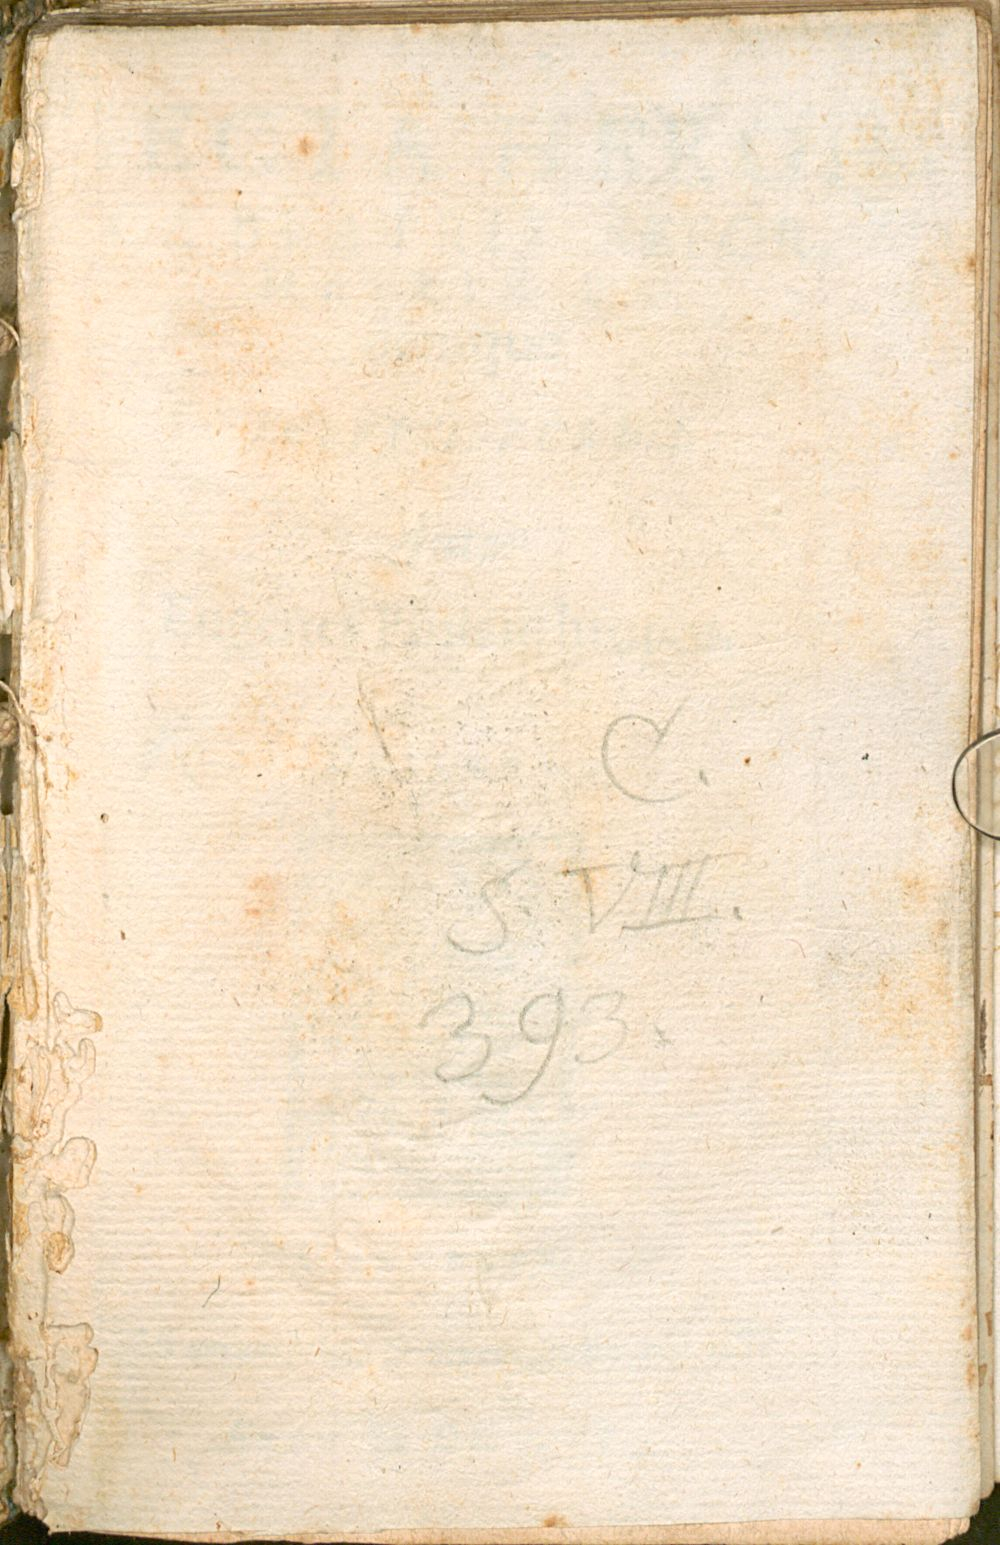 C.
S. VIII.
393.